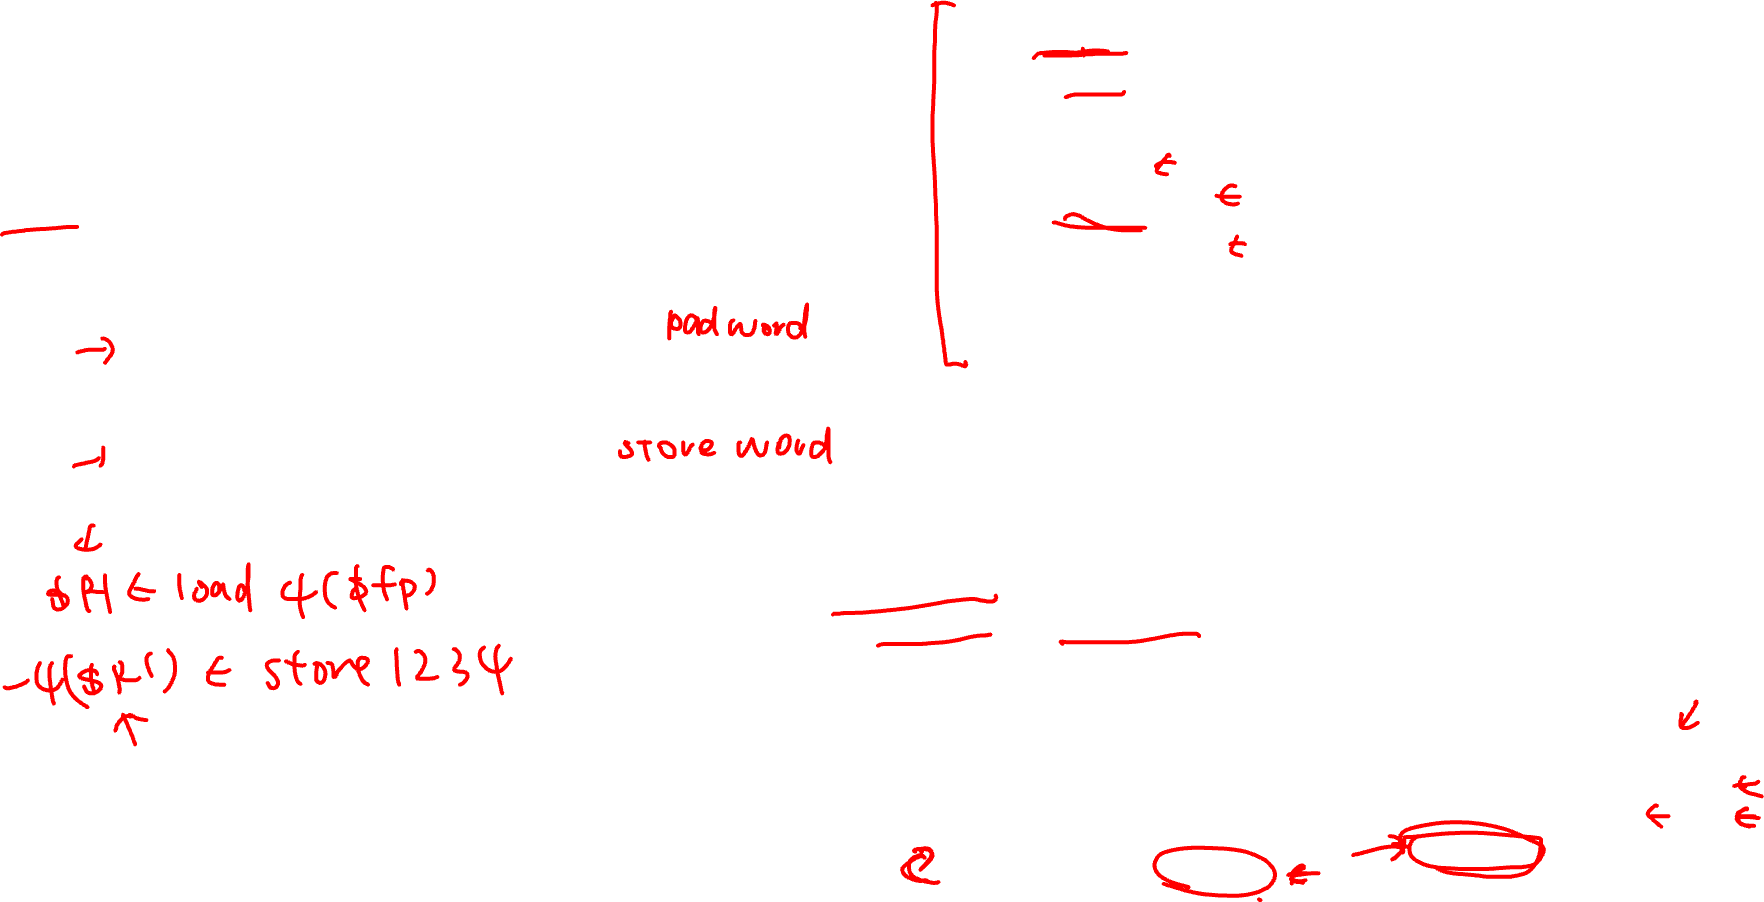 padword
store word
$R1 ← load 4($fp)
-4($R1) ← store 1234